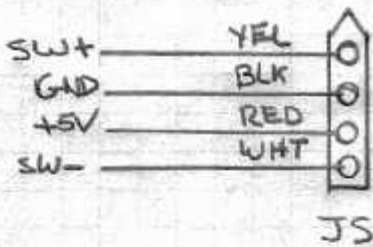 SW+ YEL
GND BLK
+5V RED
SW- WHT
JS